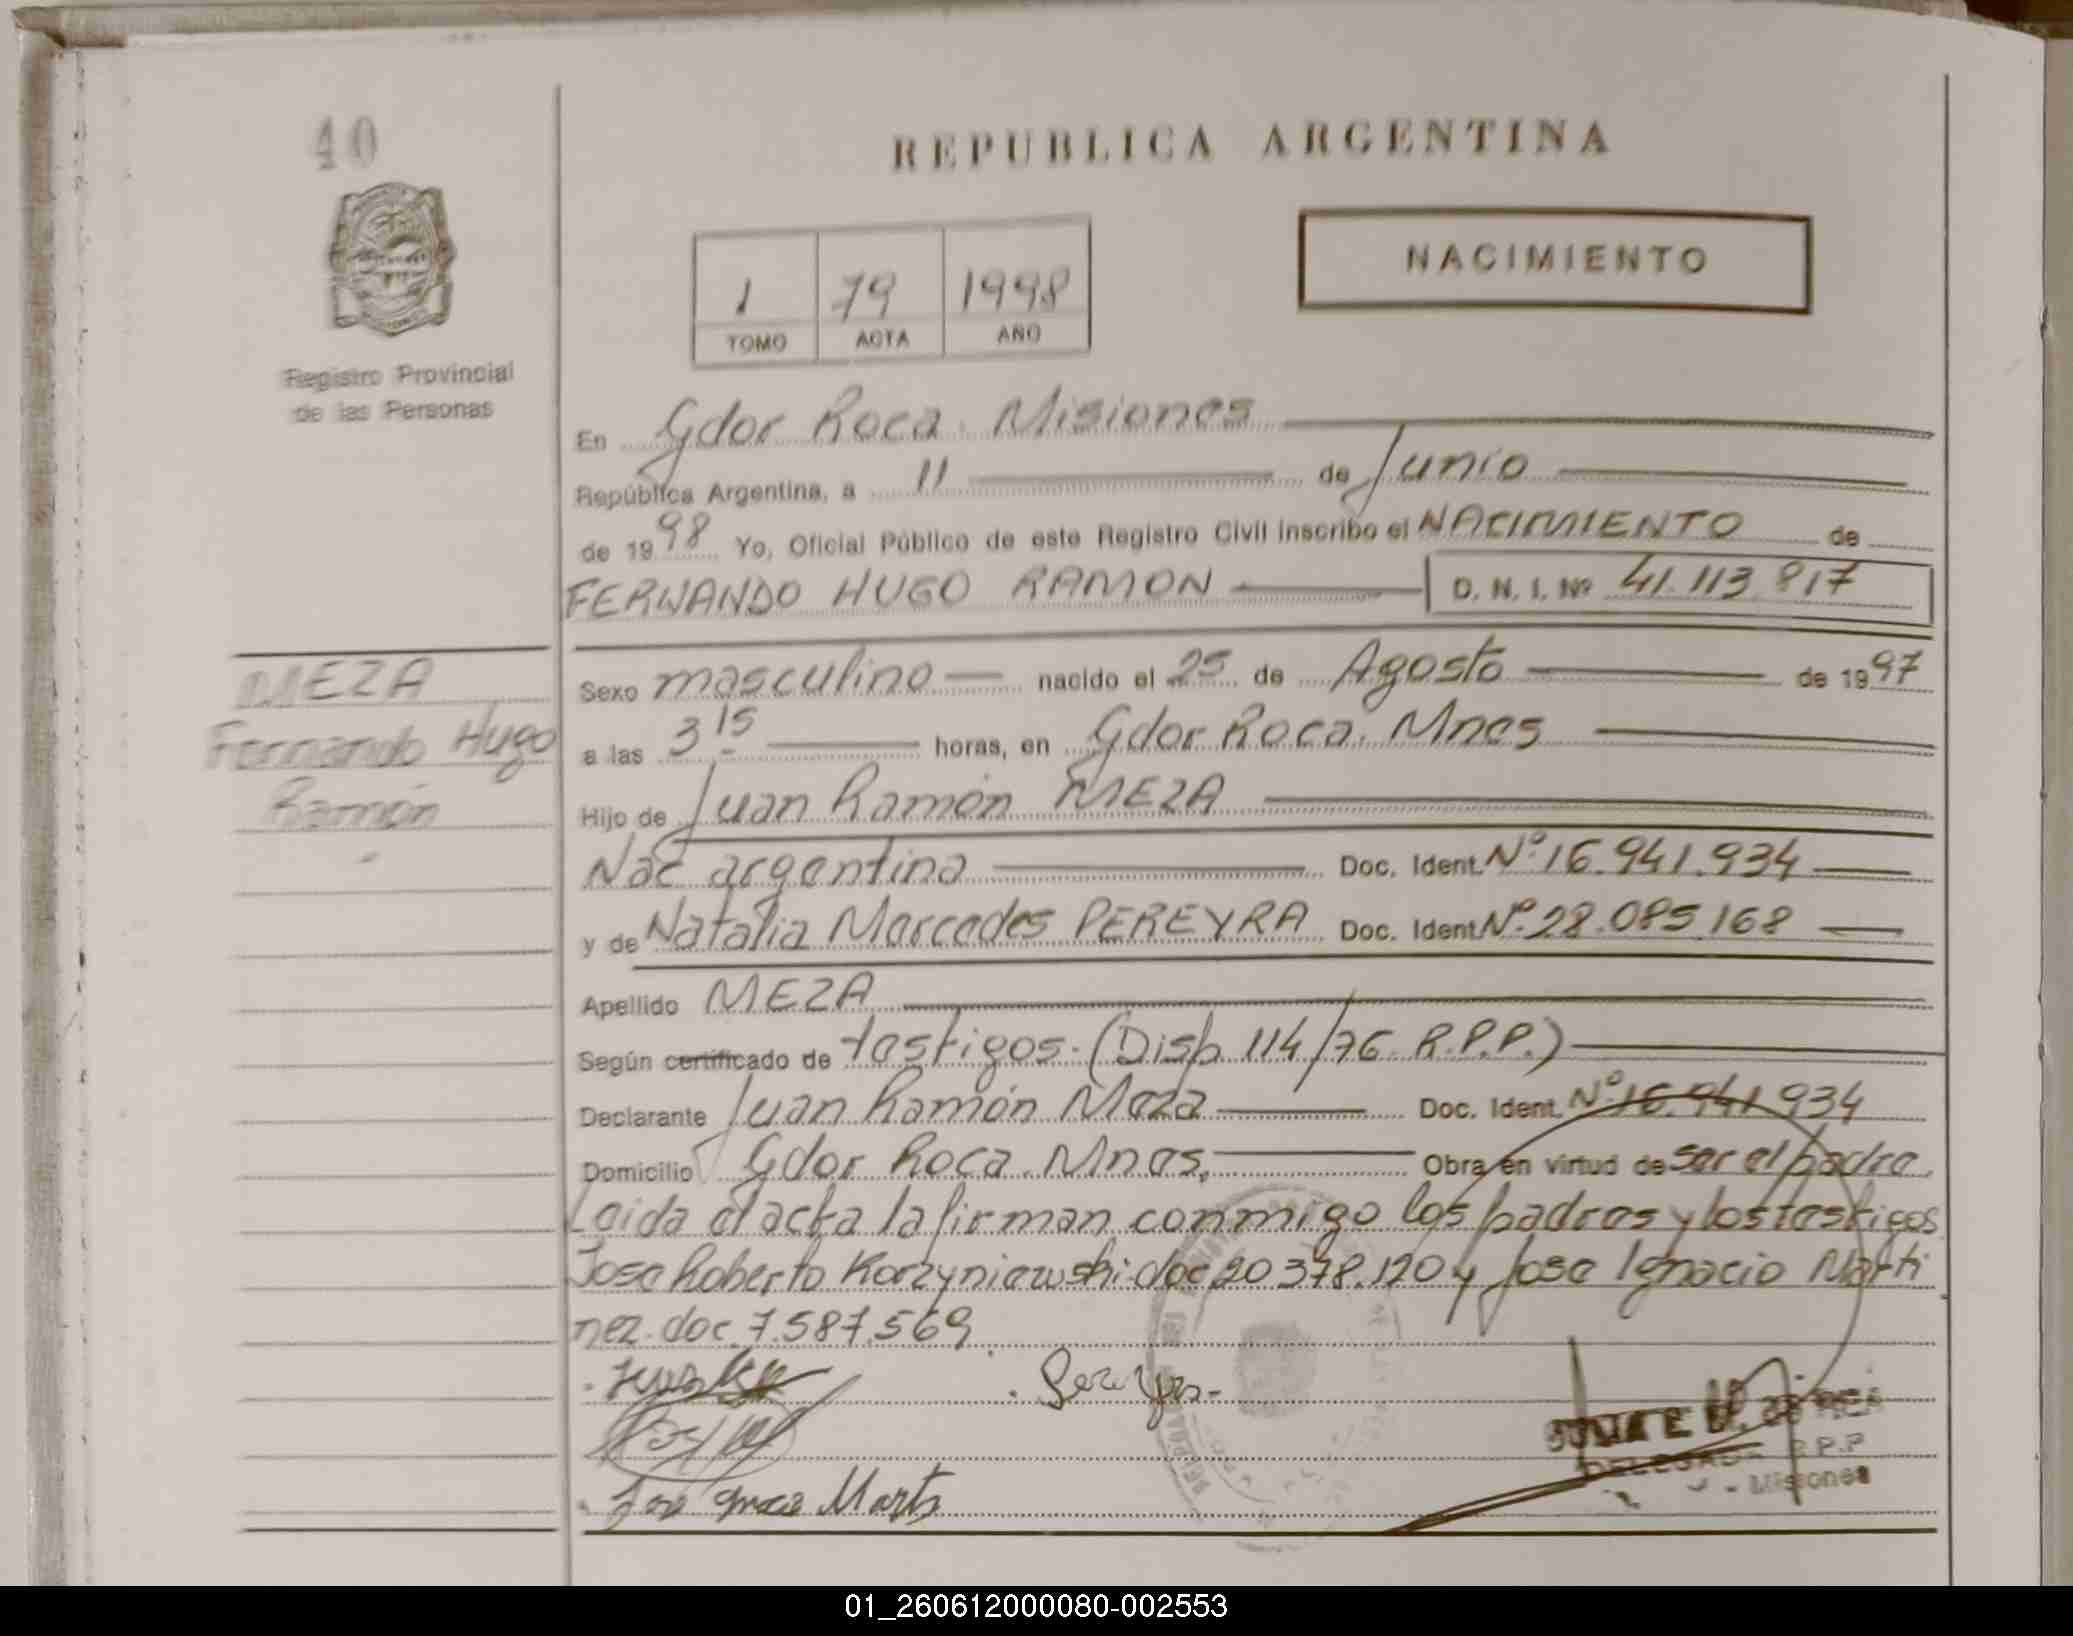 40
REPUBLICA ARGENTINA
NACIMIENTO
1 79 1998
TOMO ACTA AÑO
Registro Provincial
de las Personas
En Gdor Roca. Misiones
República Argentina, a 11 de Junio
de 1998 Yo, Oficial Público de este Registro Civil inscribo el NACIMIENTO de
FERNANDO HUGO RAMON D. N. I. Nº 41.113.817
MEZA
Fernando Hugo
Ramón
Sexo masculino nacido el 25 de Agosto de 1997
a las 3 15 horas, en Gdor Roca. Mnes
Hijo de Juan Ramón MEZA
Nac argentina Doc. Ident. Nº 16.941.934
y de Natalia Mercedes PEREYRA Doc. Ident. Nº 28.085.168
Apellido MEZA
Según certificado de testigos. (Disp 114/76 R.P.P.)
Declarante Juan Ramón Meza Doc. Ident. Nº 16.941.934
Domicilio Gdor Roca. Mnes, Obra en virtud de ser el padre.
Leida el acta la firman conmigo los padres y los testigos
Jose Roberto Korzyniewski doc 20.378.120 y Jose Ignacio Marti
nez. doc 7.587.569
R.P.P
Misiones
01_260612000080-002553